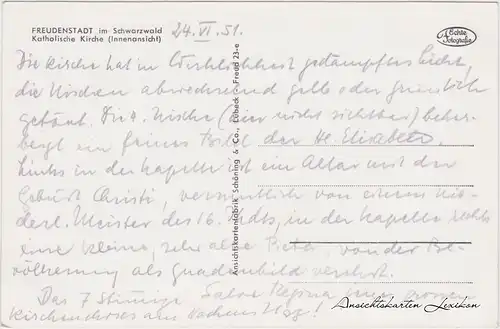 FREUDENSTADT im Schwarzwald
Katholische Kirche (Innenansicht)
24. VI. 51.
Echte Fotografie
Die Kirche hat in Wirklichkeit gedämpftes Licht,
die Nischen abwechselnd gelb oder grünlich
getönt. Die Nische (hier nicht sichtbar) beher-
bergt ein feines Bild der Hl. Elisabeth.
Links in der Kapelle ist ein Altar mit der
Geburt Christi, vermutlich von einem Nie-
derl. Meister des 16. Jhdts, in der Kapelle rechts
eine kleine, sehr alte Pietà von der Be-
völkerung als Gnadenbild verehrt.
Das 7 stimmige Salve Regina
Kirchenchores am
Ansichtskartenfabrik Schöning & Co., Lübeck · Freud 23-e
Ansichtskarten Lexikon